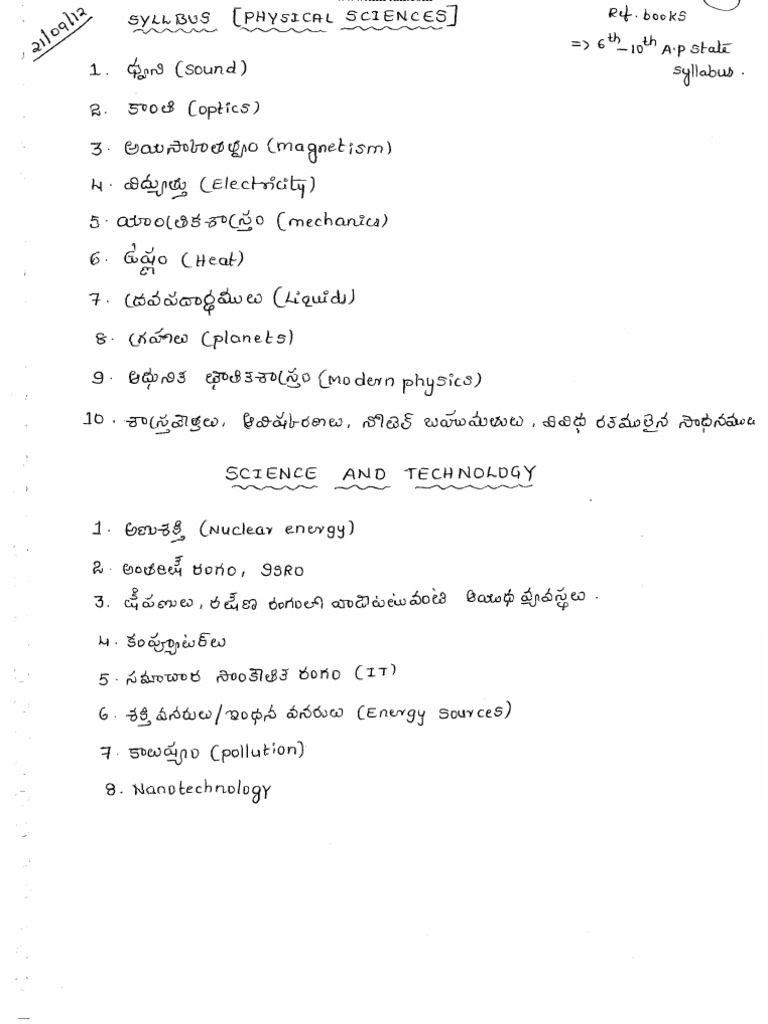 21/09/12
SYLLBUS [PHYSICAL SCIENCES]
Ref. books
=> 6th-10th A.P State
syllabus.
1. ధ్వని (Sound)
2. కాంతి (optics)
3. అయస్కాంతత్వం (magnetism)
4. విద్యుత్తు (Electricity)
5. యాంత్రికశాస్త్రం (mechanics)
6. ఉష్ణం (Heat)
7. ద్రవపదార్థములు (Liquids)
8. గ్రహాలు (planets)
9. ఆధునిక భౌతికశాస్త్రం (Modern physics)
10. శాస్త్రవేత్తలు, ఆవిష్కరణలు, నోబెల్ బహుమతులు, వివిధ రకములైన సాధనములు
SCIENCE AND TECHNOLOGY
1. అణుశక్తి (Nuclear energy)
2. అంతరిక్ష రంగం, ISRO
3. క్షిపణులు, రక్షణ రంగంలో వాడేటటువంటి ఆయుధ వ్యవస్థలు.
4. కంప్యూటర్‌లు
5. సమాచార సాంకేతిక రంగం (IT)
6. శక్తి వనరులు/ఇంధన వనరులు (Energy sources)
7. కాలుష్యం (pollution)
8. Nanotechnology